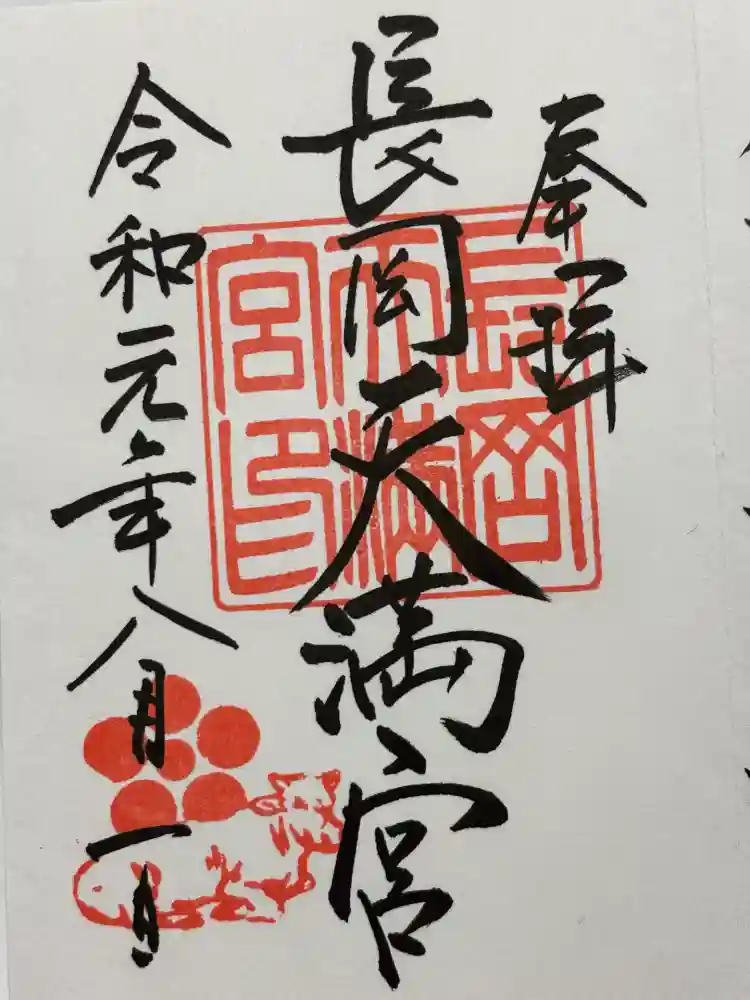 奉拝
長岡天満宮
長岡天満宮印
令和元年八月一日